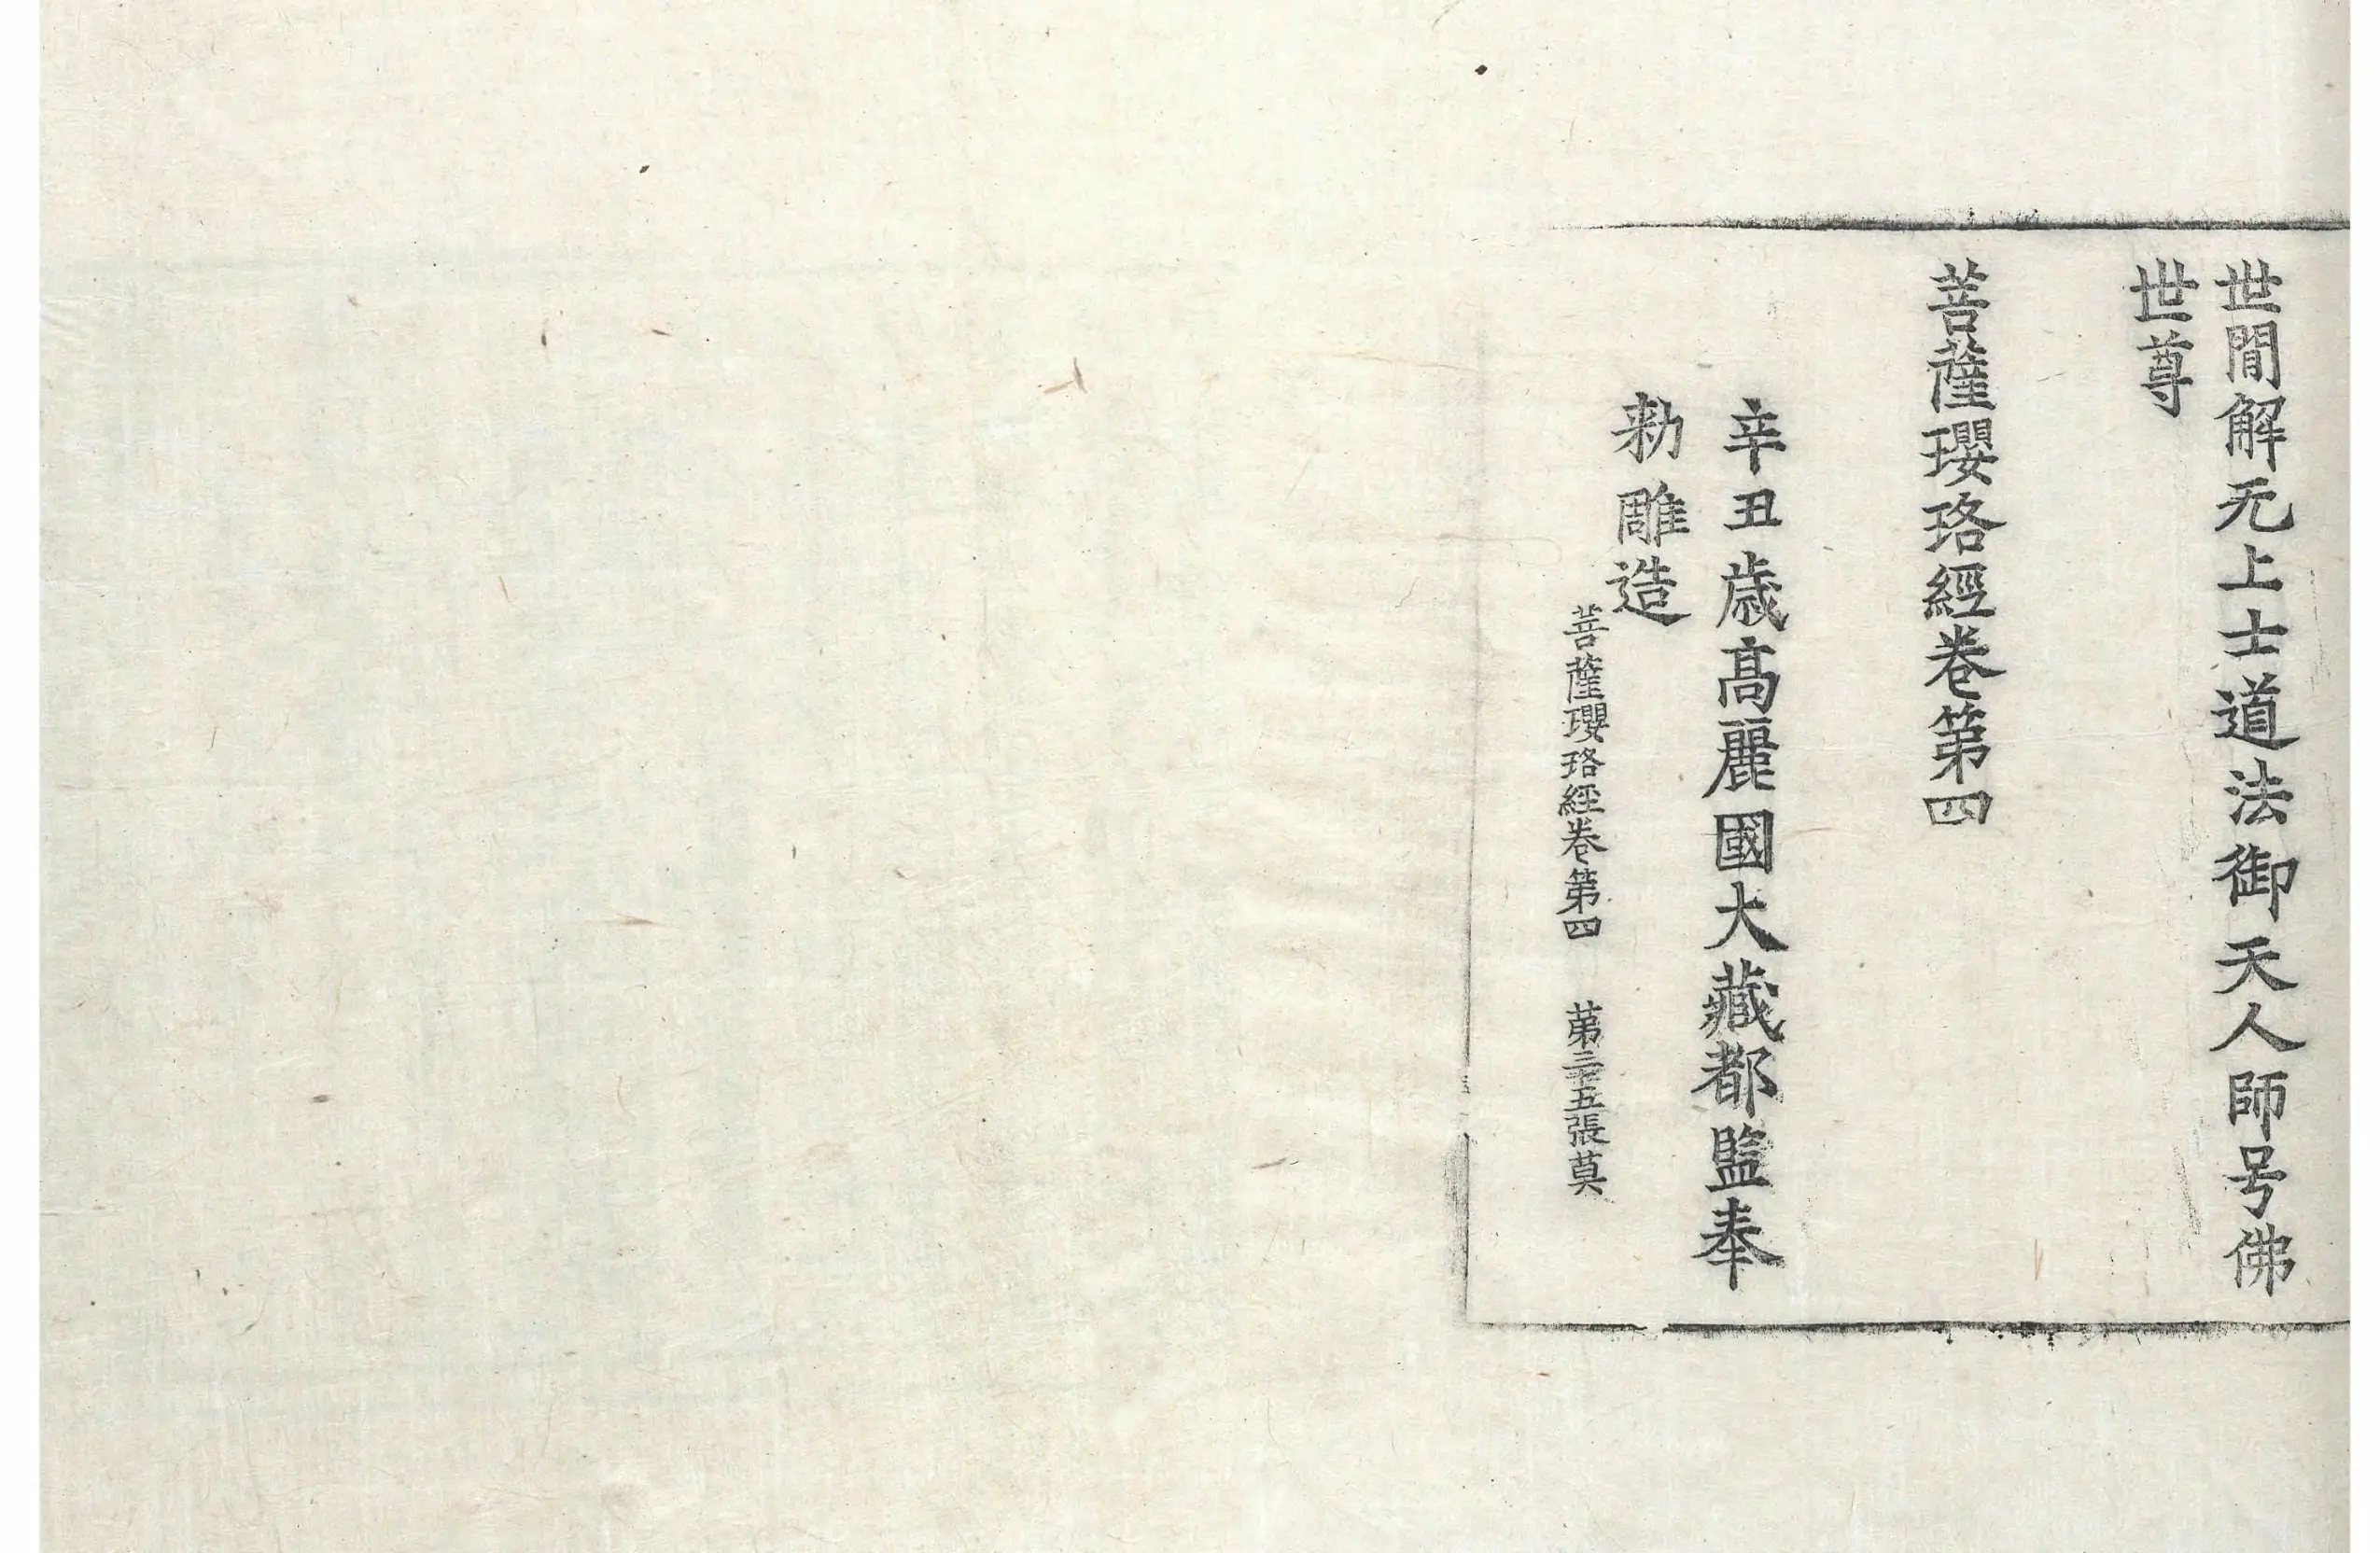 世間解无上士道法御天人師号佛
世尊
菩薩瓔珞經卷第四
辛丑歲高麗國大藏都監奉
勑雕造
菩薩瓔珞經卷第四 第二十五張莫